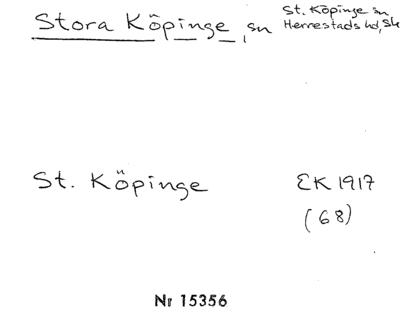 Stora Köpinge, sn
St. Köpinge sn
Herrestads hd, Sk
St. Köpinge
EK 1917
(68)
Nr 15356